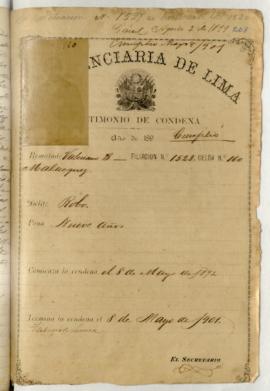 Cumplió Mayo 8/901
ENCIARIA DE LIMA
TESTIMONIO DE CONDENA
Año de 189 Cumplió
Rematado Valerian B— FILIACION N.º 1528. CELDA N.º 160
Malasquez
Delito Robo.
Pena Nueve años
Comienza la condena el 8 de Mayo de 1892
Termina la condena el 8 de Mayo de 1901.
EL SECRETARIO